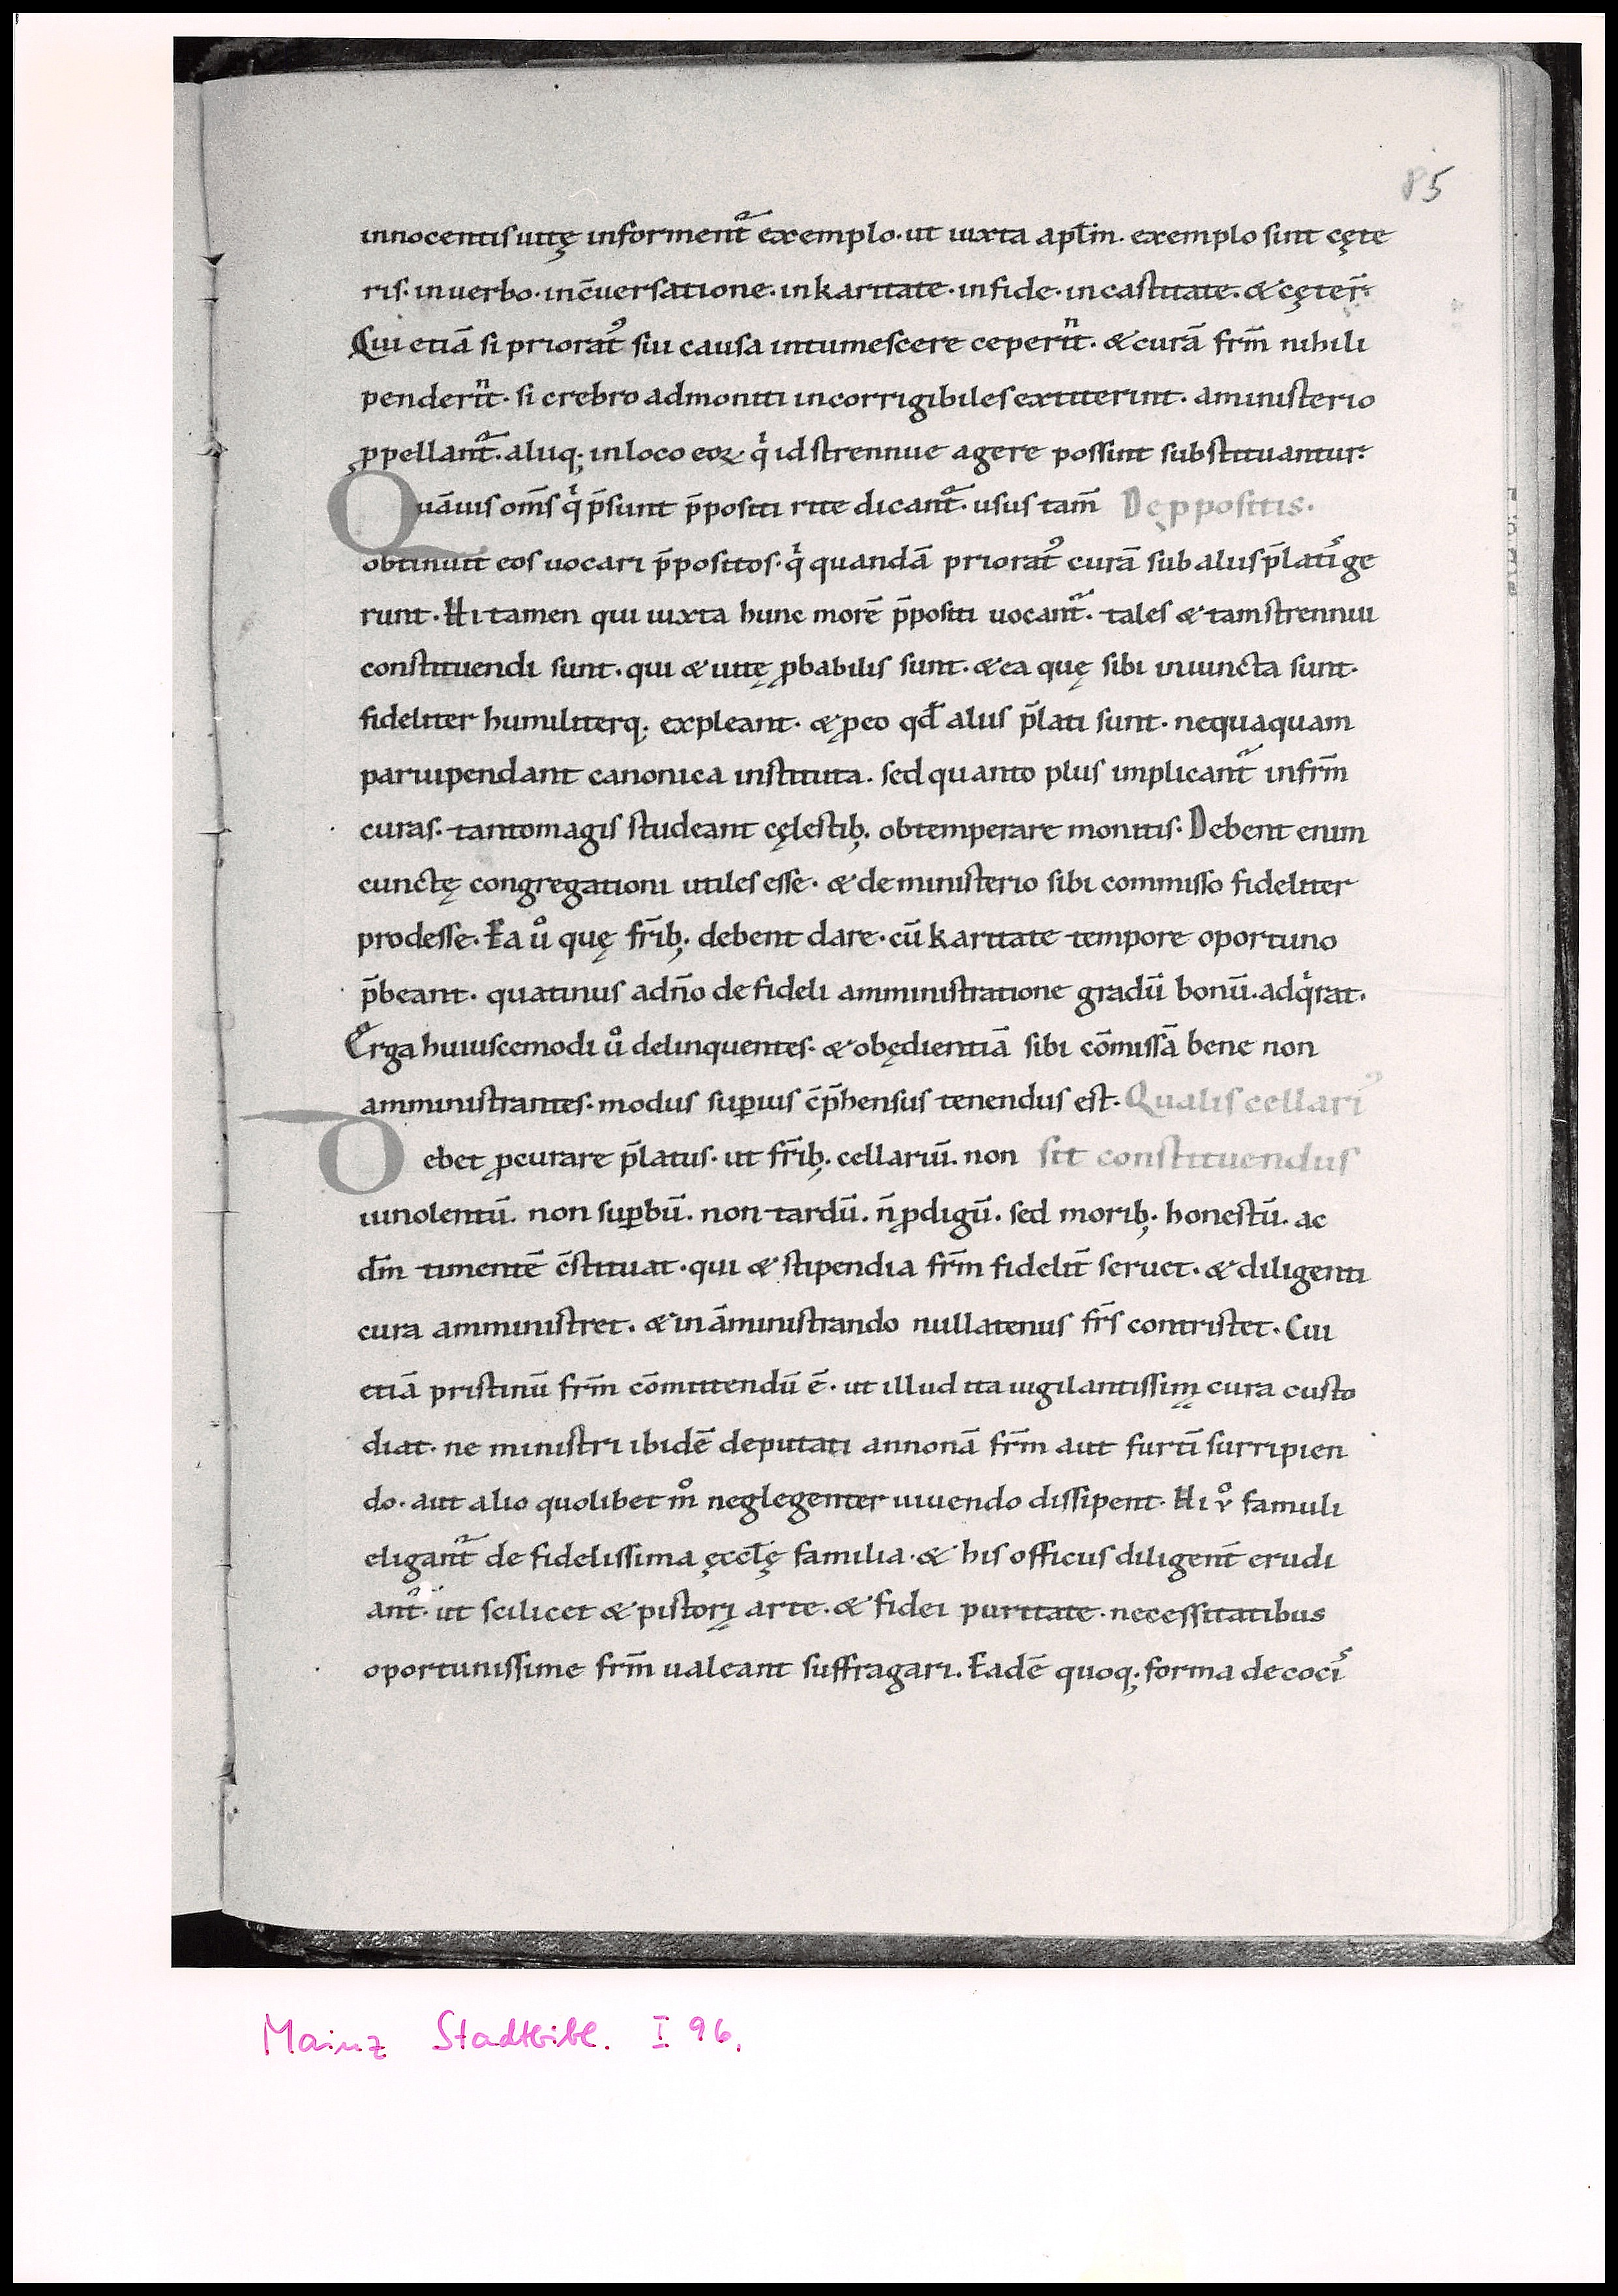 85
innocentis uitę informent᷑ exemplo· ut iuxta apłm· exemplo sint cęte
ris· in uerbo· in c̄uersatione· in karitate· in fide· in castitate· & cęter̄·
Qui etiā si priorat᷒ siu causa intumescere ceperit̄· & curā frm̄ nihili
penderit̄· si crebro admoniti incorrigibiles extiterint· a ministerio
ꝓpellant᷑· aliiq; in loco eoꝝ qͥ id strennue agere possint substituantur·
Quāuis om̄s qͥ p̄sunt p̄positi rite dicant᷑· usus tam̄ De p̱positis·
obtinuit eos uocari p̄positos· qͥ quandā priorat᷒ curā sub aliis p̄latiˢ ge
runt· Hi tamen qui iuxta hunc morē p̄positi uocant᷑· tales & tam strennui
constituendi sunt· qui & uitę ꝓbabilis sunt· & ea quę sibi iniuncta sunt·
fideliter humiliterq; expleant· & ꝑ eo qđ aliis p̄lati sunt· nequaquam
paruipendant canonica instituta· sed quanto plus implicant᷑ in frm̄
curas· tanto magis studeant cęlestib; obtemperare monitis· Debent enim
cunctę congregationi utiles esse· & de ministerio sibi commisso fideliter
prodesse· Ea uͦ quę fr̄ib; debent dare· cū karitate tempore oportuno
p̄beant· quatinus a dn̄o de fideli amministratione gradū bonū· adqͥrat·
Erga huiuscemodi uͦ delinquentes· & obędientiā sibi cōmissā bene non
amministrantes· modus suꝑius c̄p̄hensus tenendus est· Qualis cellari᷒
Debet ꝓcurare p̄latus· ut fr̄ib; cellariū· non sit constituendus
uinolentū· non suꝑbū· non tardū· n̄ ꝓdigū· sed morib; honestū· ac
dm̄ timentē c̄stituat· qui & stipendia frm̄ fidelit̄ seruet· & diligenti
cura amministret· & in āministrando nullatenus frs̄ contristet· Cui
etiā pristinū frm̄ cōmittendū ē· ut illud ita uigilantissimę cura custo
diat· ne ministri ibidē deputati annonā frm̄ aut furtī surripien
do· aut alio quolibet mͦ neglegenter uiuendo dissipent· Hi vͦ famuli
eligant᷑ de fidelissima ęccłę familia· & his officiis diligent̄ erudi
ant᷑· ut scilicet & pistorię arte· & fidei puritate· necessitatibus
oportunissime frm̄ ualeant suffragari· Eadē quoq; forma de cociˢ
Mainz Stadtbibl. I 96.